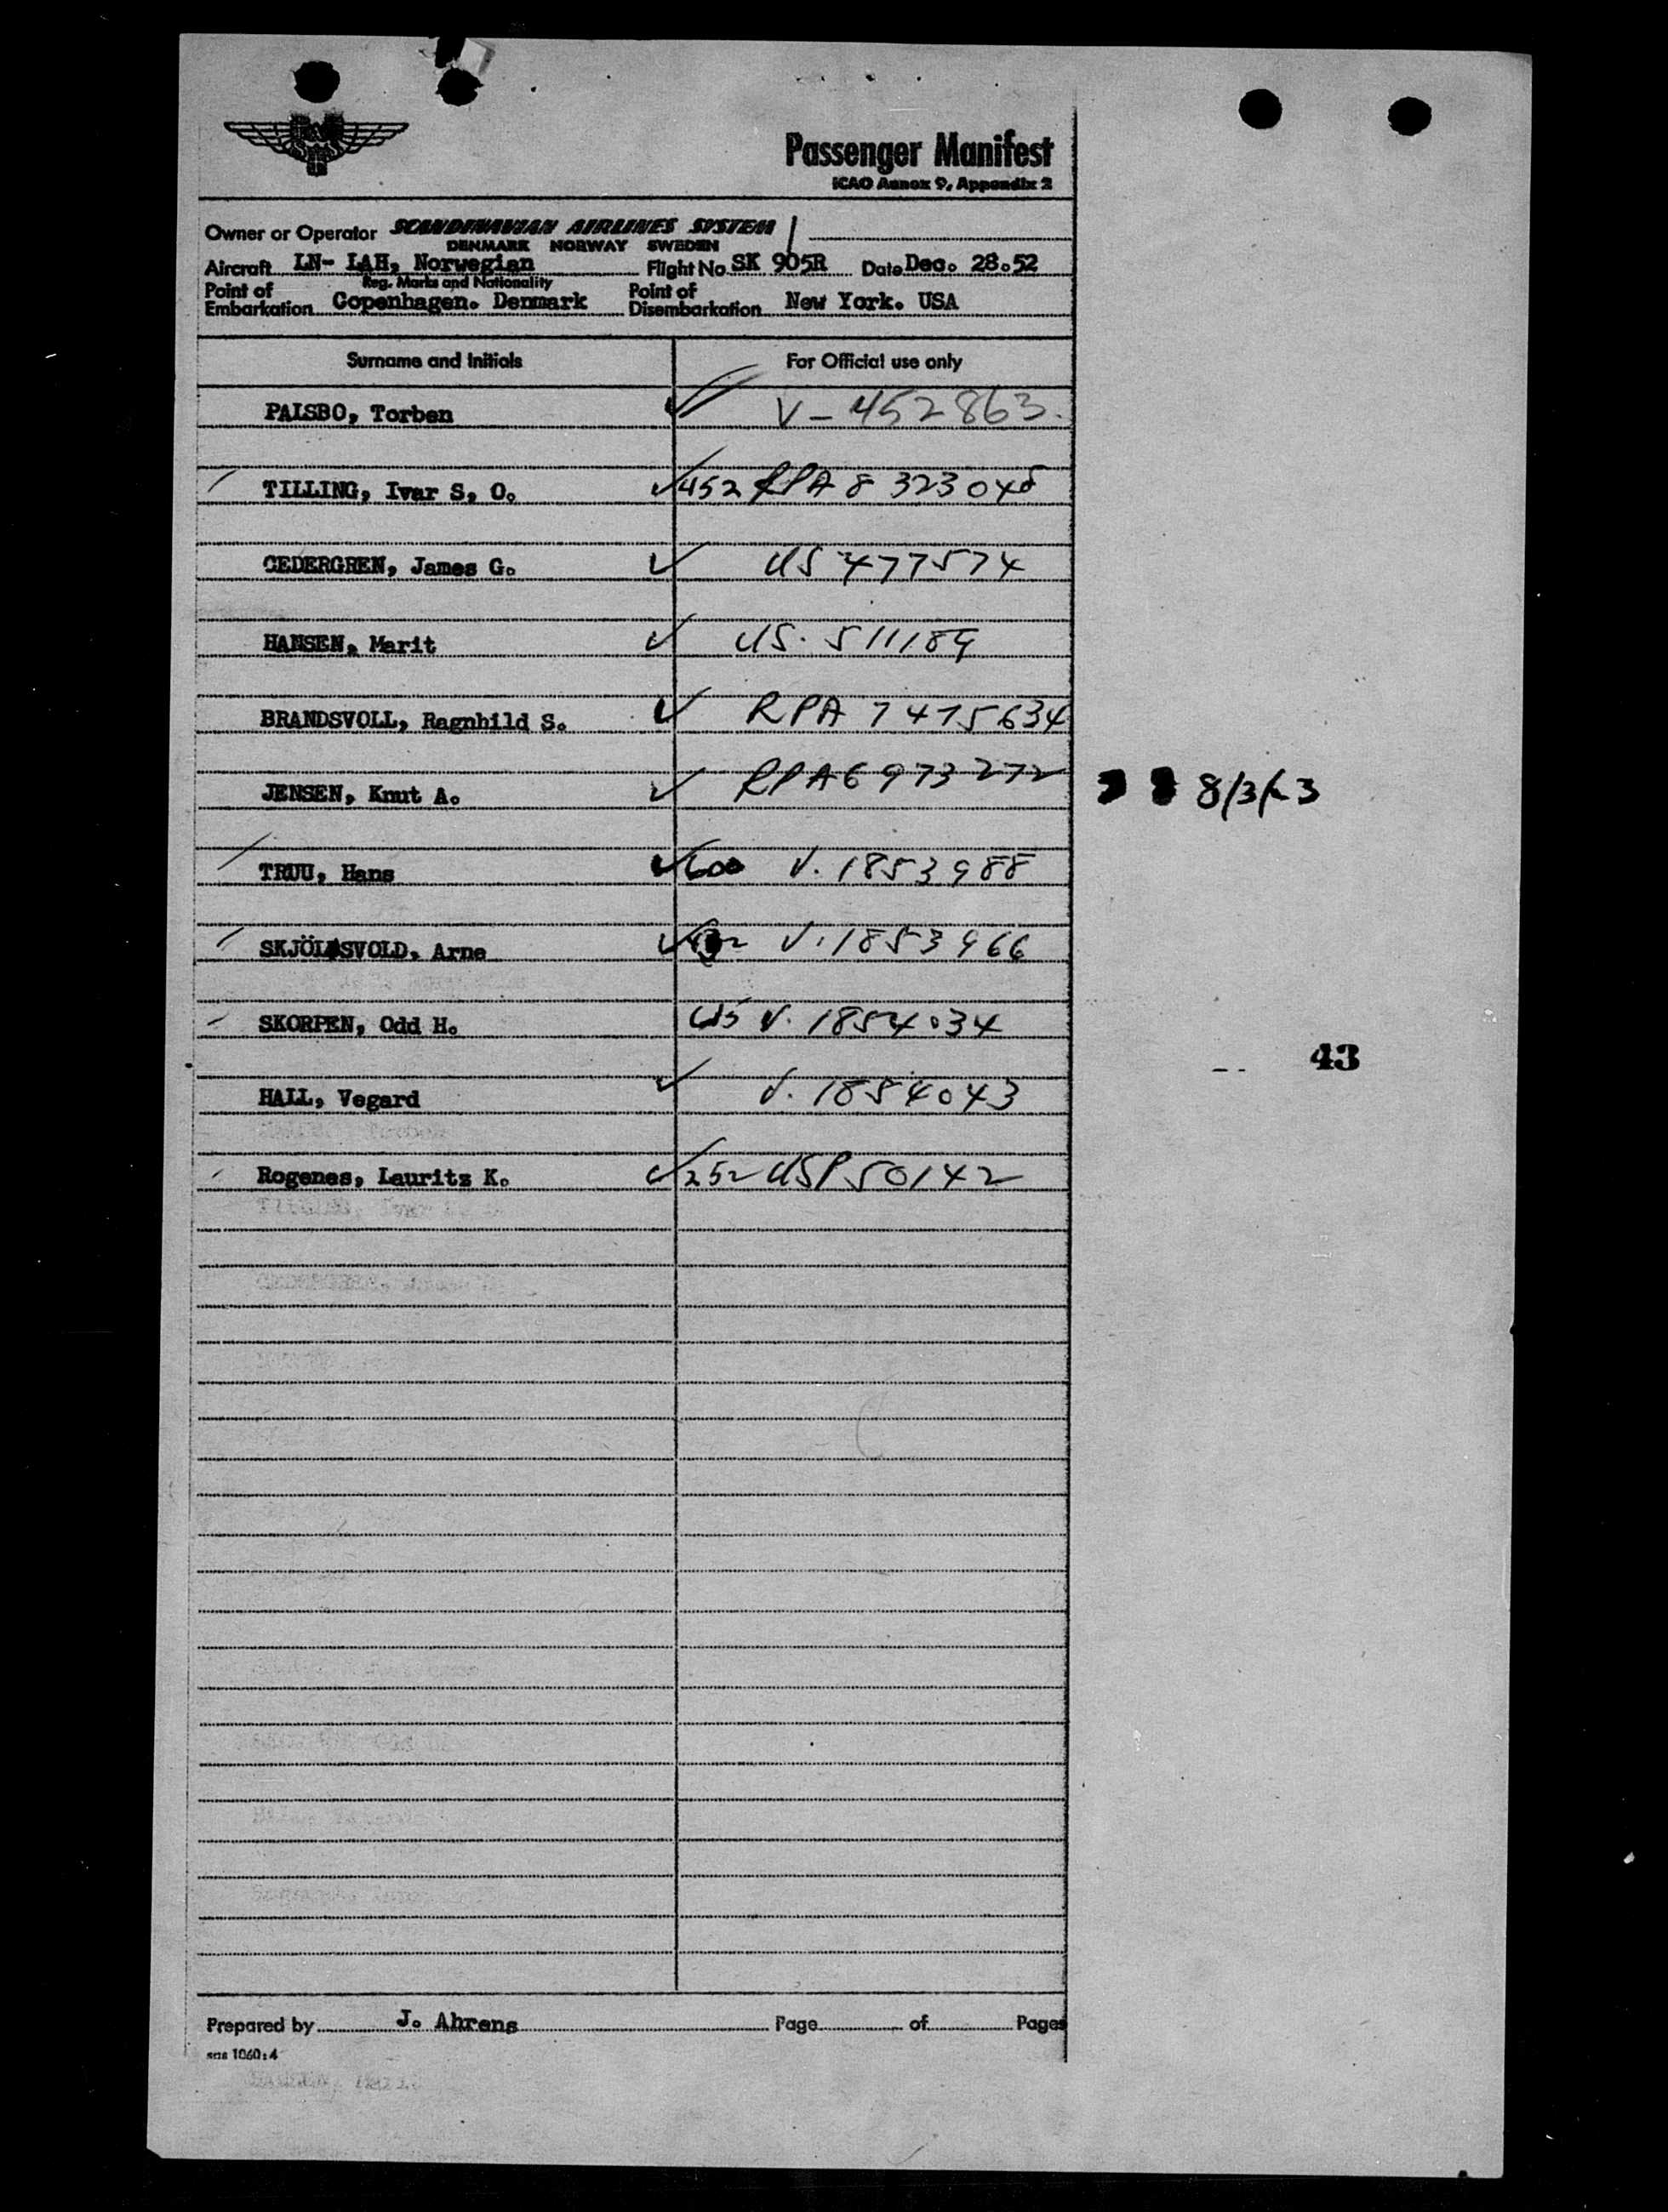 Passenger Manifest
ICAO Annex 9, Appendix 2
Owner or Operator SCANDINAVIAN AIRLINES SYSTEM
DENMARK NORWAY SWEDEN
Aircraft LN- LAH, Norwegian Flight No. SK 905R Date Dec. 28.52
Reg. Marks and Nationality
Point of Embarkation Copenhagen. Denmark Point of Disembarkation New York. USA
Surname and Initials For Official use only
PALSBO, Torben V-452863.
TILLING, Ivar S, O. 452 RPA 8 323045
CEDERGREN, James G. US 477574
HANSEN, Marit US. 511189
BRANDSVOLL, Ragnhild S. RPA 7475634
JENSEN, Knut A. RPA 6973272 8/3/
TRUU, Hans 600 V. 1853988
SKJÖLDSVOLD, Arne V. 1853966
SKORPEN, Odd H. V. 1854034
43
HALL, Vegard V. 1854043
Rogenes, Lauritz K. 252 USP 50142
Prepared by J. Ahrens Page of Pages
sas 1060:4